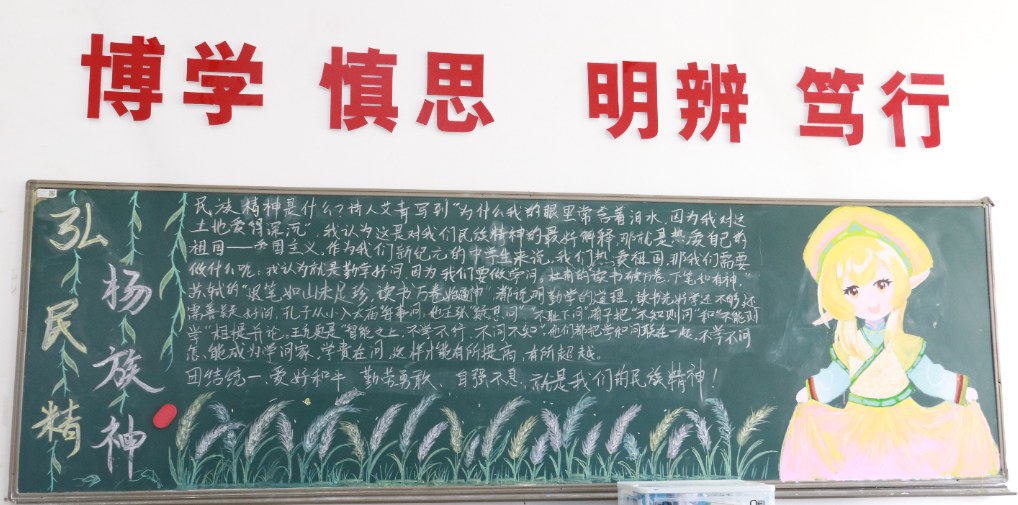 博学 慎思 明辨 笃行
弘扬民族精神
民族精神是什么?诗人艾青写到“为什么我的眼里常含着泪水,因为我对这
土地爱得深沉”我认为这是对我们民族精神的最好解释,那就是热爱自己的
祖国——爱国主义,作为我们新纪元的中学生来说,我们热爱祖国,那我们需要
做什么呢:我认为就是勤学好问,因为我们要做学问,杜甫的读书破万卷,下笔如有神,”
苏轼的“退笔如山未足珍,读书万卷始通神”都说明勤学的道理,读书光好学还不够,还
需要 好问,孔子从小入太庙每事问,他主张“ 问”“不耻下问”荀子把“不知则问”和“不能则
学”相提并论,王充更是“智能之士,不学不行,不问不知”他们都把学和问联在一起,不学不问
怎能成为学问家,学贵在问,这样才能有所提高,有所超越.
团结统一、爱好和平、勤劳勇敢、自强不息,就是我们的民族精神!